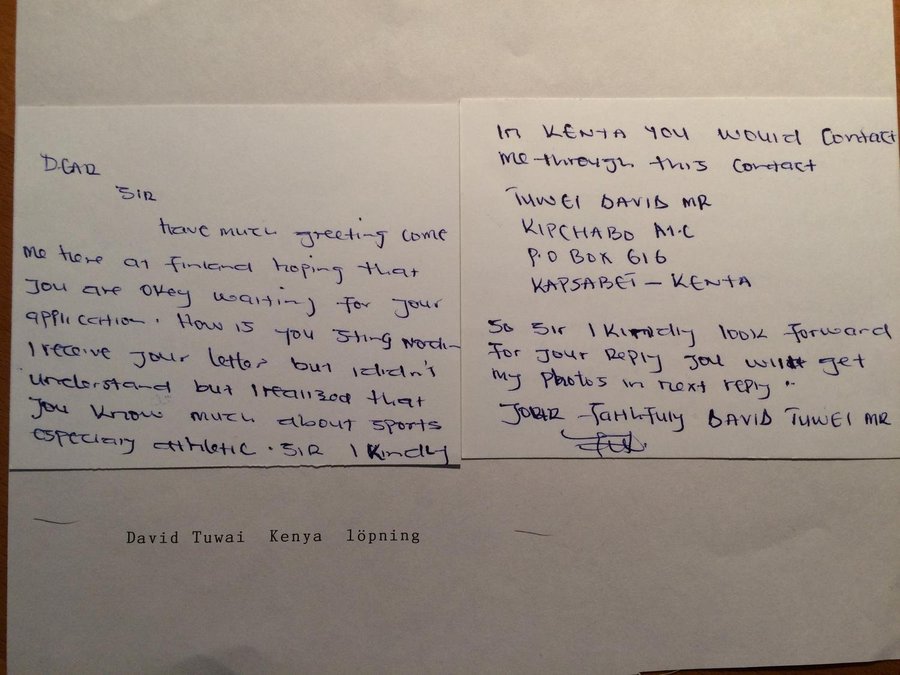 DEAR
SIR
have much greeting come
me here at finland hoping that
you are okey waiting for your
application. How is you Sting Nordin
I receive your letter but I didn't
understand but I realized that
you know much about sports
especiary athletic. SIR I kindly
In KENYA YOU WOULD Contact
me through this contact
TUWEI DAVID MR
KIPCHABO A.I.C
P.O BOX 616
KAPSABET - KENYA
So Sir I kindly look forward
for your reply you will get
my photos in next reply..
YOUR faithfuly DAVID TUWEI MR
David Tuwai Kenya löpning